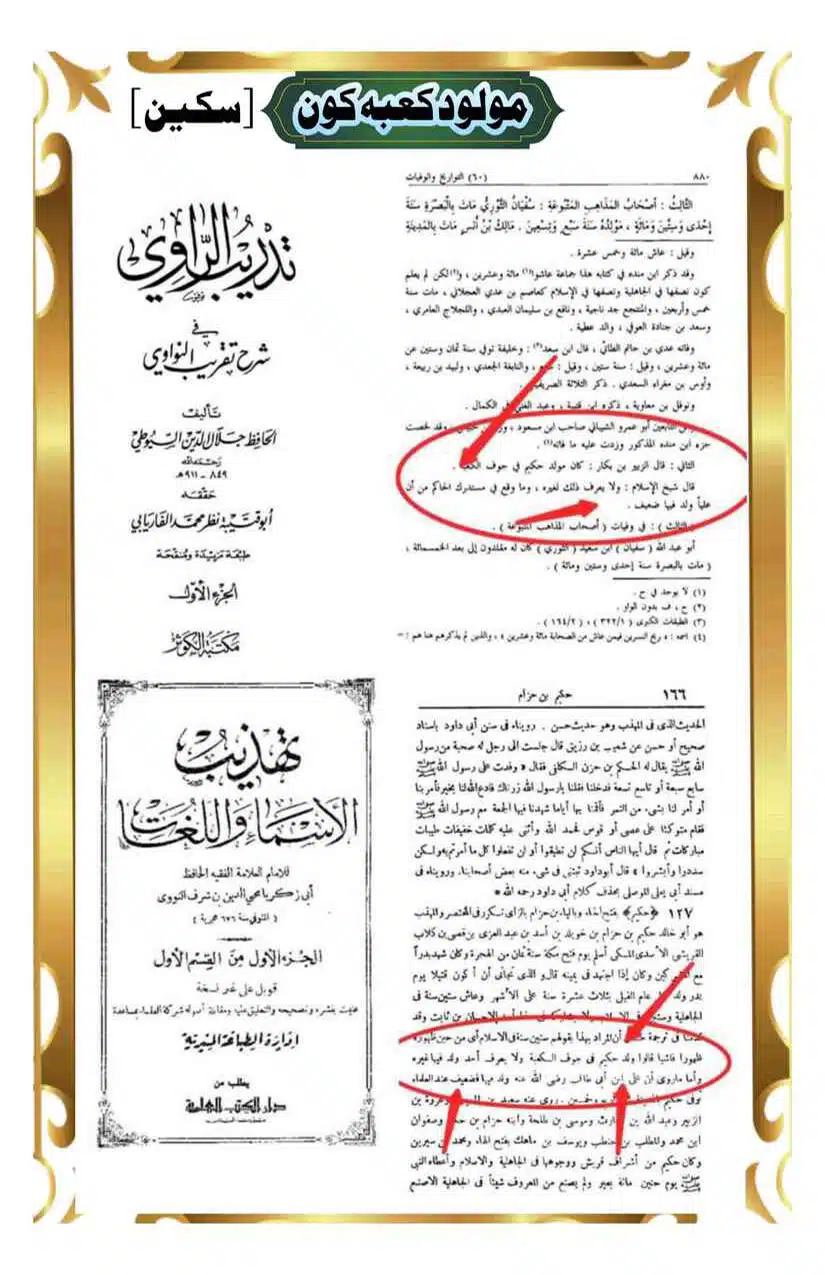 مولود کعبہ کون [سکین]
تدريب الراوي
في
شرح تقريب النواوي
تأليف
الحافظ جلال الدين السيوطي
رحمه الله
٨٤٩ - ٩١١هـ
حققه
أبو قتيبة نظر محمد الفاريابي
طبعة مزيدة ومنقحة
الجزء الأول
مكتبة الكوثر
٨٨٠
(٦٠) التواريخ والوفيات
الثالث : أصحاب المذاهب المتبوعة : سفيان الثوري مات بالبصرة سنة
إحدى وستين ومائة ، مولده سنة سبع وتسعين . مالك بن أنس مات بالمدينة
وقيل : عاش مائة وخمس عشرة .
وقد ذكر ابن منده في كتابه هذا جماعة عاشوا(١) مائة وعشرين ، و(٢)لكن لم يعلم
كون نصفها في الجاهلية ونصفها في الإسلام كعاصم بن عدي العجلاني ، مات سنة
خمس وأربعين ، والمنتجع جد ناجية ، ونافع بن سليمان العبدي ، واللجلاج العامري ،
وسعد بن جنادة العوفي ، والد عطية .
وفاته عدي بن حاتم الطائي ، قال ابن سعد(٣) : وخليفة توفي سنة ثمان وستين عن
مائة وعشرين ، وقيل : سنة ستين ، وقيل : ، والنابغة الجعدي ، ولبيد بن ربيعة ،
وأوس بن مغراء السعدي . ذكر الثلاثة الصريفيني .
ونوفل بن معاوية ، ذكره ابن قتيبة ، وعبد الغني في الكمال .
التابعين أبو عمرو الشيباني صاحب ابن مسعود ، وقد لخصت
جزء ابن منده المذكور وزدت عليه ما فاته(٤) .
الثاني : قال الزبير بن بكار : كان مولد حكيم في جوف الكعبة .
قال شيخ الإسلام : ولا يعرف ذلك لغيره ، وما وقع في مستدرك الحاكم من أن
علياً ولد فيها ضعيف .
(الثالث) : في وفيات ( أصحاب المذاهب المتبوعة ) .
أبو عبد الله ( سفيان ) ابن سعيد ( الثوري ) كان له مقلدون إلى بعد الخمسمائة ،
( مات بالبصرة سنة إحدى وستين ومائة ) .
(١) لا يوجد في ح .
(٢) ح ، ف بدون الواو .
(٣) الطبقات الكبرى ( ٣٢٢/١ ) ، ( ١٦٤/٢ ) .
(٤) اسمه : ريح النسرين فيمن عاش من الصحابة مائة وعشرين ، والذين لم يذكرهم هنا هم : =
تهذيب
الأسماء واللغات
للامام العلامة الفقيه الحافظ
أبي زكريا محيي الدين بن شرف النووي
( المتوفى سنة ٦٧٦ هجرية )
الجزء الأول من القسم الأول
قوبل على غير نسخة
عنيت بنشره وتصحيحه والتعليق عليه ومقابلة أصوله شركة العلماء بمساعدة
إدارة الطباعة المنيرية
يطلب من
دار الكتب العلمية
١٦٦
حكيم بن حزام
الحديث الذى فى المهذب وهو حديث حسن . رويناه فى سنن أبى داود باسناد
صحيح أو حسن عن شعيب بن رزيق قال جلست الى رجل له صحبة من رسول
الله ﷺ يقال له الحكم بن حزن الكلفى فقال « وفدت على رسول الله ﷺ
سابع سبعة أو تاسع تسعة فدخلنا فقلنا يارسول الله زرناك فادع الله لنا بخير فأمر بنا
أو أمر لنا بشىء من التمر فأقمنا بها أياما شهدنا فيها الجمعة مع رسول الله ﷺ
فقام متوكئا على عصى أو قوس فحمد الله وأثنى عليه كلمات خفيفات طيبات
مباركات ثم قال أيها الناس أنكم لن تطيقوا أو لن تفعلوا كل ما أمرتم به ولكن
سددرا وأبشروا » قال أبو داود ثبتنى فى شىء منه بعض أصحابنا . ورويناه فى
مسند أبى يعلى الموصلى بحذف كلام أبى داود رحمه الله *
١٢٧ ﴿حكيم﴾ بفتح الحاء وبالياء بن حزام بالزاى تكرر فى المختصر والمهذب
هو أبو خالد حكيم بن حزام بن خويلد بن أسد بن عبد العزى بن قصى بن كلاب
القريشى الأسدى المكى أسلم يوم فتح مكة سنة ثمان من الهجرة وكان شهد بدرا
مع المشركين وكان إذا اجتهد فى يمينه قال والذى نجانى أن أكون قتيلا يوم
بدر ولد عام الفيل بثلاث عشرة سنة على الأشهر وعاش ستين سنة فى
الجاهلية
ترجمة أن المراد بهذا بقولهم ستين سنة فى الاسلام أى من حين ظهوره
ظهورا فاشيا قالوا ولد حكيم فى جوف الكعبة ولا يعرف أحد ولد فيها غيره
وأما ماروى أن على ابن أبى طالب رضى الله عنه ولد فيها فضعيف عند العلماء
توفى حكيم وخمسين . روى عنه سعيد بن وعروة بن
الزبير وعبد الله بن وموسى بن طلحة وابنه حزام بن حكيم وصفوان
ابن محمد والمطلب بن حنطب ويوسف بن ماهك بفتح الهاء ومحمد بن سيرين
وكان حكيم من أشراف قريش ووجوهها فى الجاهلية والاسلام وأعطاه النبى
ﷺ يوم حنين مائة بعير ولم يصنع من المعروف شيئا فى الجاهلية الاصنع